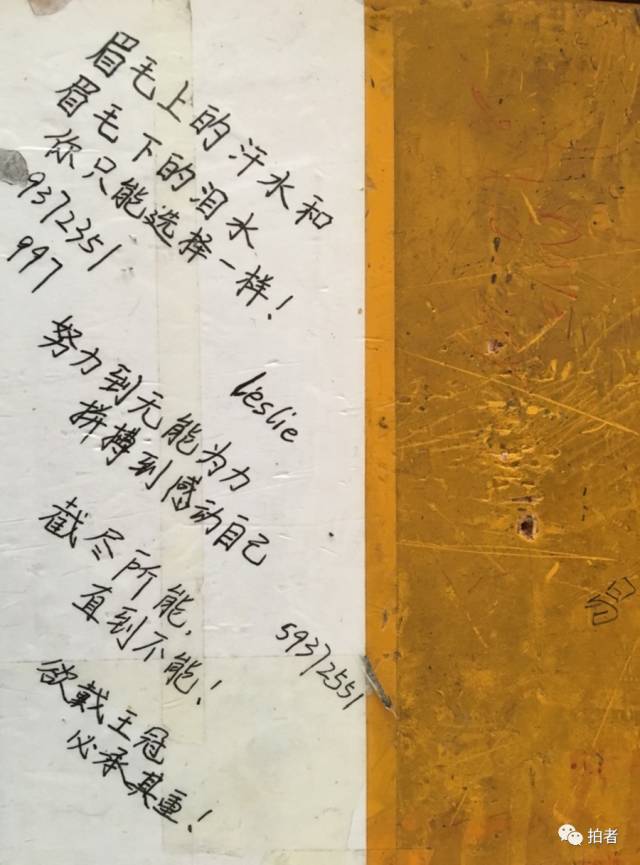 眉毛上的汗水和
眉毛下的泪水
你只能选择一样！
9372351
997
Leslie
努力到无能为力
拼搏到感动自己
截尽所能，
直到不能！
59372551
欲戴王冠
必承其重！
拍者